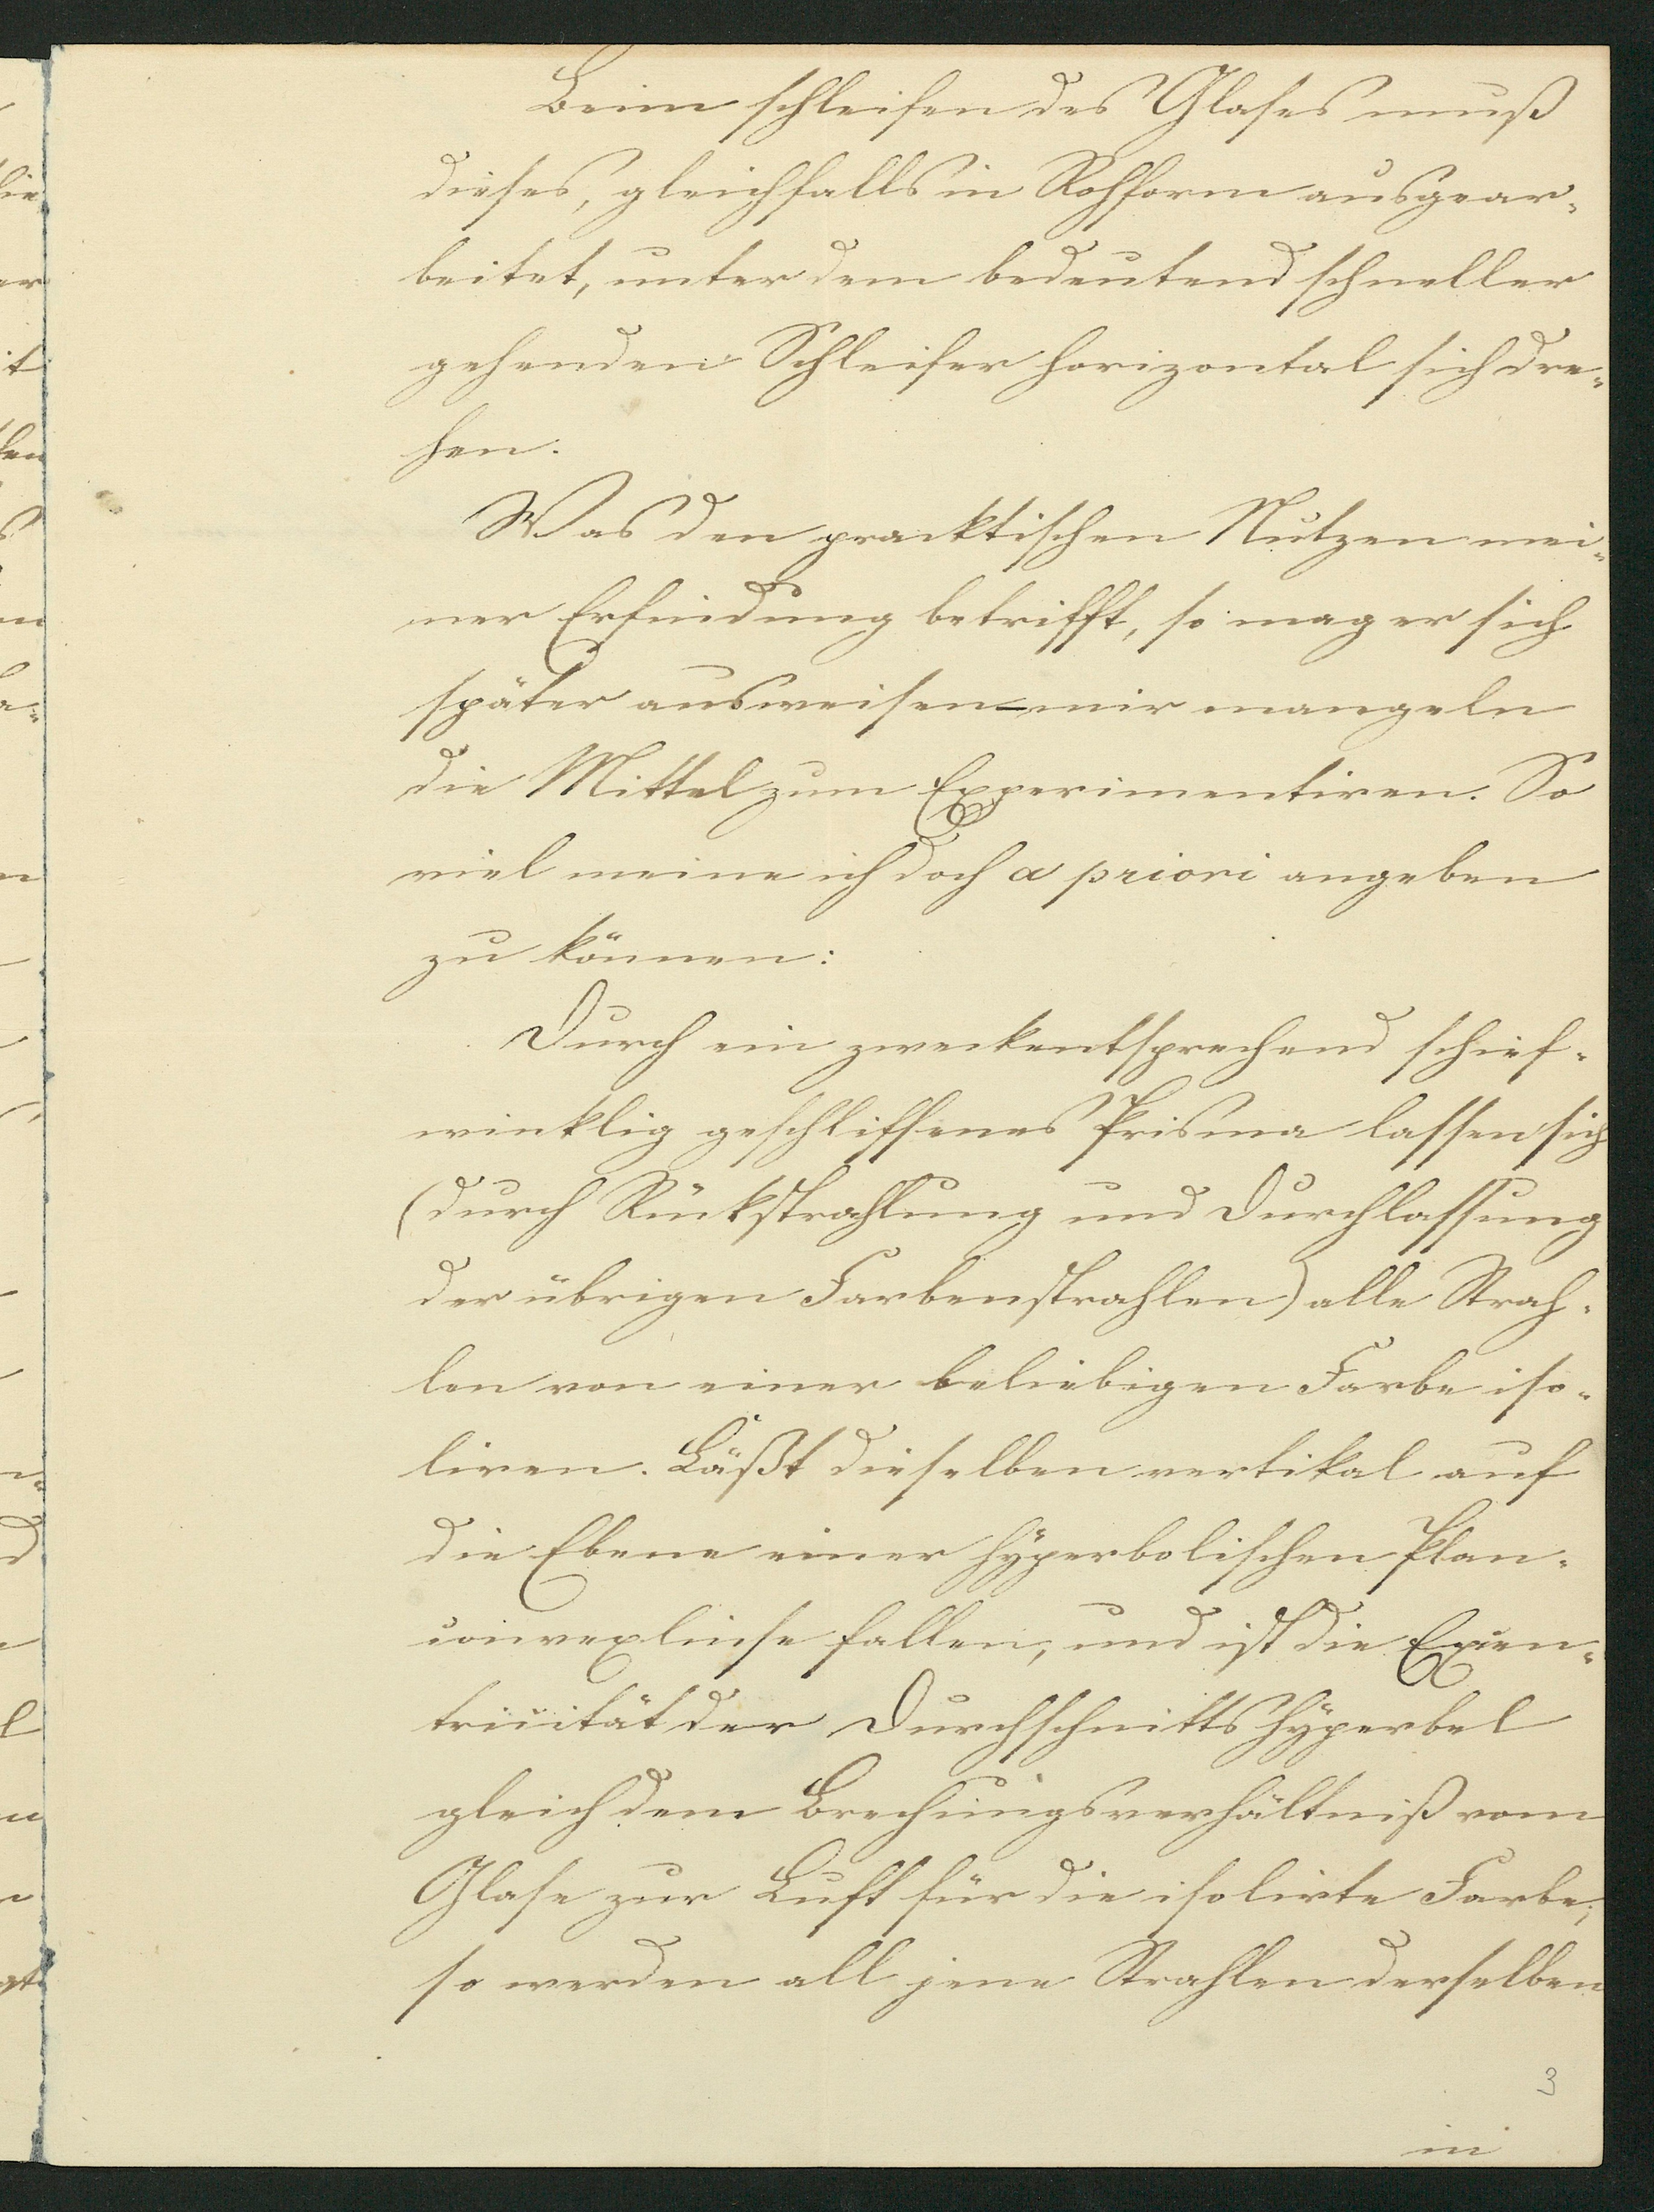 Beim schleifen des Glases muß
dieses, gleichfalls in Rohform ausgear-
beitet, unter dem bedeutend schneller
gehenden Schleifer horizontal sich dre-
hen.
Was den pracktischen Nutzen mei-
ner Erfindung betrifft, so mag er sich
später ausweisen – mir mangeln
die Mittel zum Experimentiren. So
viel meine ich doch a priori angeben
zu können:
Durch ein zweckentsprechend schief-
winklig geschliffenes Prisma lassen sich
(durch Rückstrahlung und Durchlassung
der übrigen Farbenstrahlen) alle Strah-
len von einer beliebigen Farbe iso-
liren. Läßt dieselben vertikal auf
die Ebene einer hyperbolischen Plan-
convexlinse fallen, und ist die Excen-
tricität der Durchschnittshyperbel
gleich dem Brechungsverhältniß vom
Glase zur Luft für die isolirte Farbe;
so werden all jene Strahlen derselben
3
in